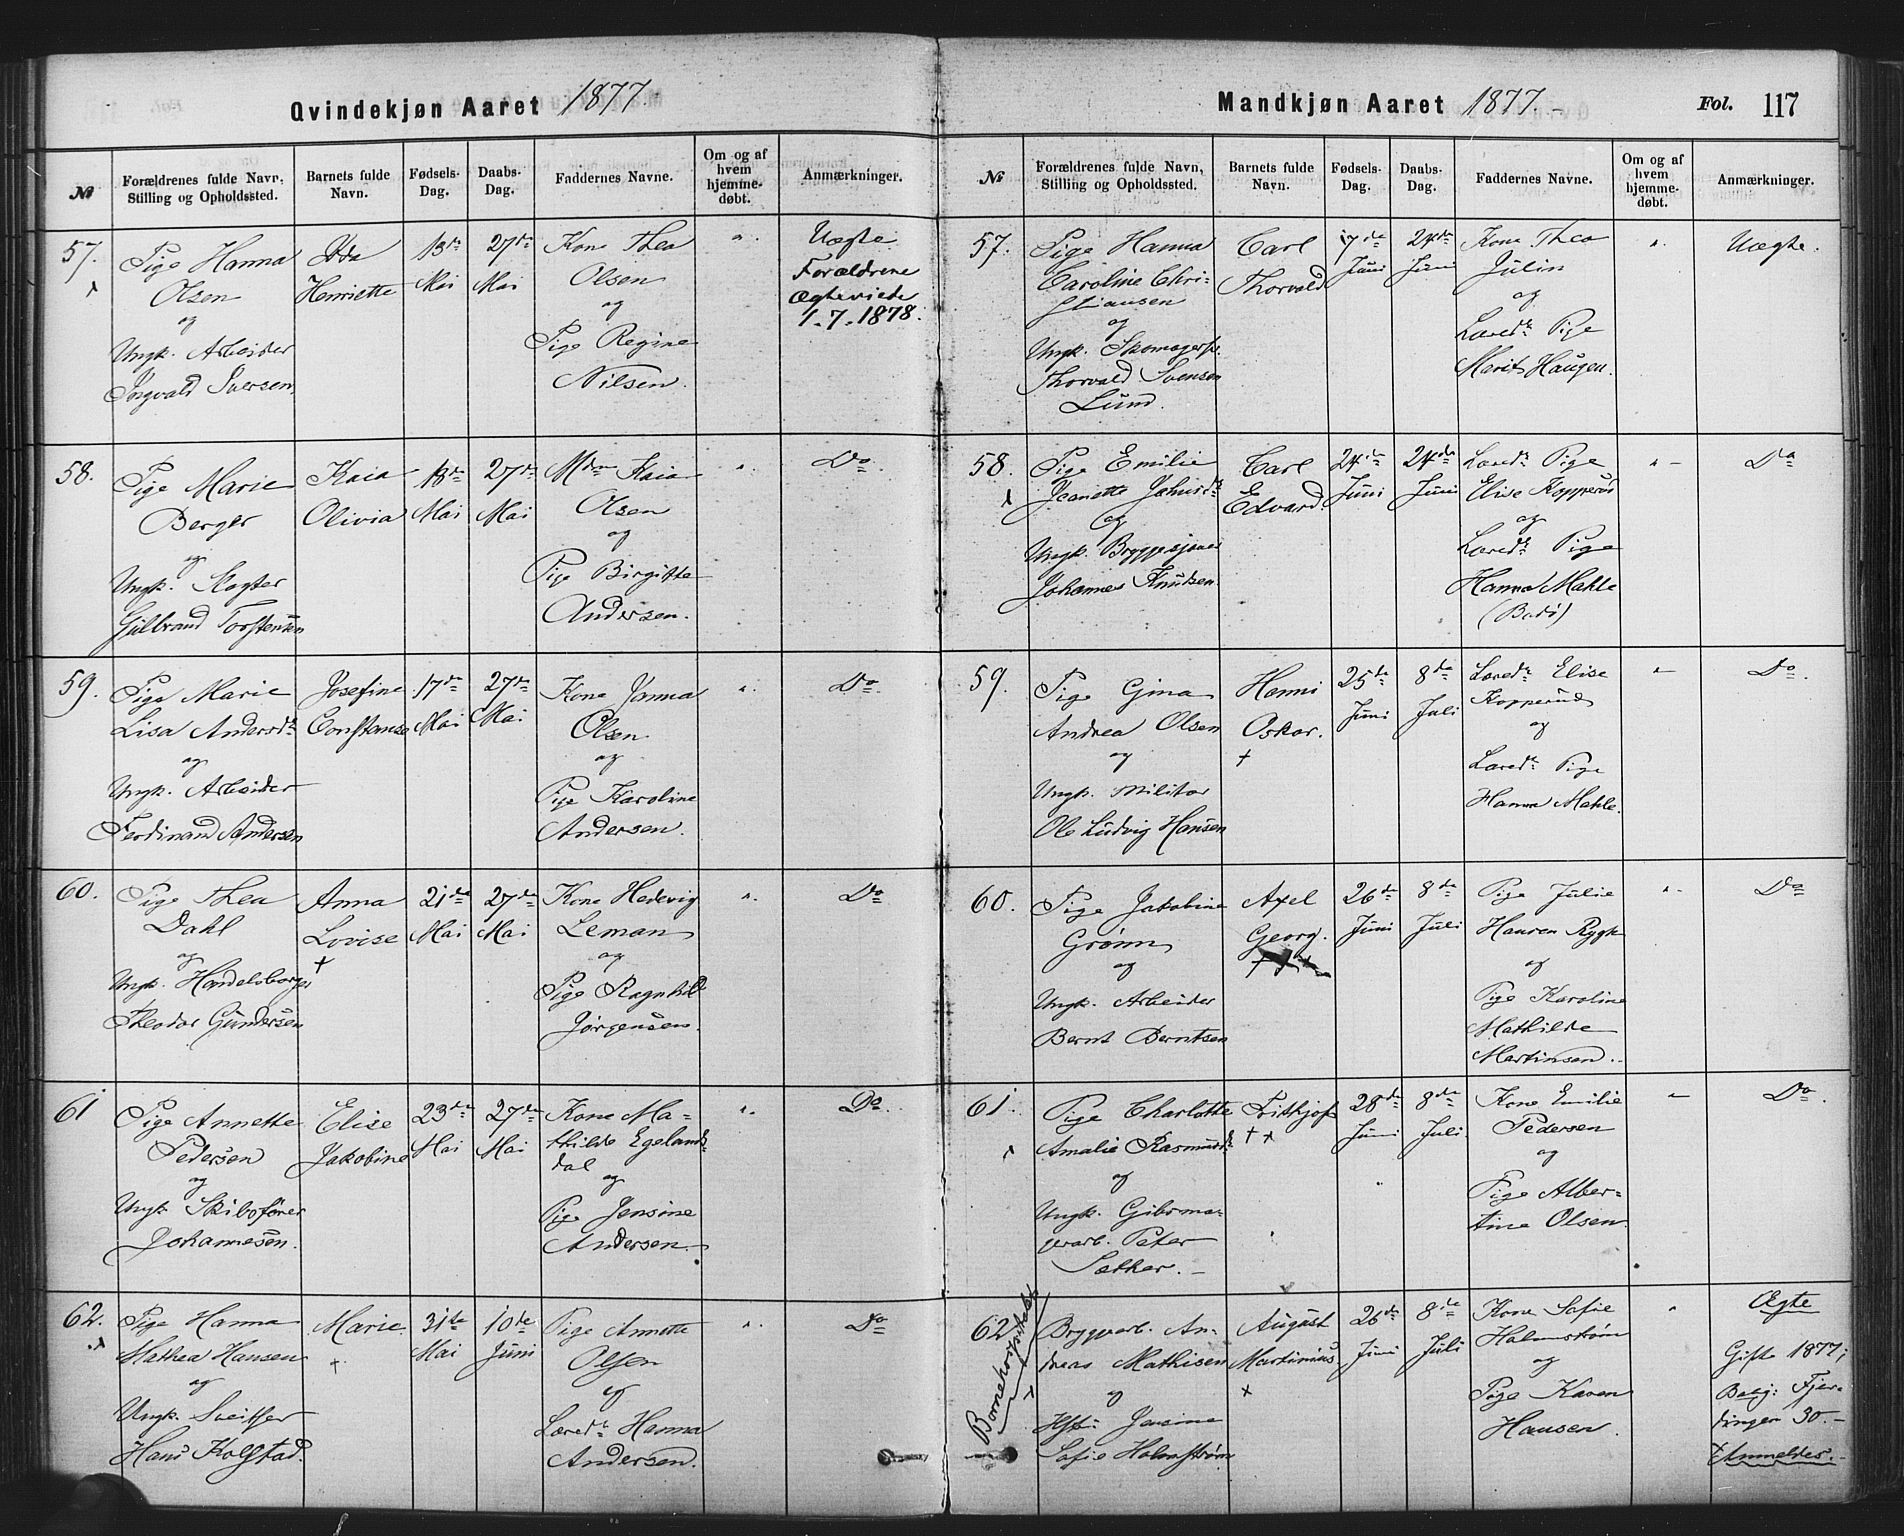 Qvindekjøn Aaret 1877.
№
Forældrenes fulde Navn,
Stilling og Opholdssted.
Barnets fulde
Navn.
Fødsels-
Dag.
Daabs-
Dag.
Faddernes Navne.
Om og af
hvem
hjemme-
døbt.
Anmærkninger.
57.
Pige Hanna
Olsen
og
Ungk. Arbeider
Ingvald Iversen
Ida
Henriette
13de
Mai
27de
Mai
Kone Thea
Olsen
og
Pige Regine
Nilsen.
".
Uægte.
Forældrene
Ægteviede
1.7.1878.
58.
Pige Marie
Berger
og
Ungk. Slagter
Gulbrand Torstensen
Kaia
Olivia
13de
Mai
27de
Mai
Mdm Kaia
Olsen
og
Pige Birgitte
Andersen.
".
Do
59.
Pige Marie
Lisa Andersdt
og
Ungk. Arbeider
Ferdinand Andersen
Josefine
Constanse
17de
Mai
27de
Mai
Kone Janna
Olsen
og
Pige Karoline
Andersen.
".
Do.
60.
Pige Thea
Dahl
og
Ungk. Handelsborger
Theodor Gundersen
Anna
Lovise
+
21de
Mai
27de
Mai
Kone Hedevig
Leman
og
Pige Ragnhild
Jørgensen.
".
Do
61
Pige Annette
Pedersen
og
Ungk. Skibsfører
Johannesen.
Elise
Jakobine
23de
Mai
27de
Mai
Kone Ma-
thilde Egelands-
dal
og
Pige Jensine
Andersen.
".
Do.
62.
Pige Hanna
Mathea Hansen
og
Ungk. Sveitser
Hans Kolstad.
Marie.
+
31te
Mai
10de
Juni
Pige Annette
Olsen
og
Læredt Hanna
Andersen.
".
Do
Mandkjøn Aaret 1877.
Fol. 117
№
Forældrenes fulde Navn,
Stilling og Opholdssted.
Barnets fulde
Navn.
Fødsels-
Dag.
Daabs-
Dag.
Faddernes Navne.
Om og af
hvem
hjemme-
døbt.
Anmærkninger.
57.
Pige Hanna
Caroline Chri-
stiansen
og
Ungk. Skomagersv.
Thorvald Svensen
Lund.
Carl
Thorvald
7de
Juni
24de
Juni
Kone Thea
Julin
og
Læredt Pige
Marit Haugen.
".
Uægte.
58.
Pige Emilie
Jeanette Johnsdt
og
Ungk. Bryggesjauer
Johannes Knudsen.
Carl
Edvard
24de
Juni
24de
Juni
Læredt Pige
Elise Kopperud
og
Læredt Pige
Hanna Mahle
(Bodø)
".
Do
59.
Pige Gina
Andrea Olsen
og
Ungk. Militær
Ole Ludvig Hansen
Henni
Oskar.
+
25de
Juni
8de
Juli
Læredt Elise
Kopperud
og
Læredt Pige
Hanna Mahle.
"
Do.
60.
Pige Jakobine
Grønn
og
Ungk. Arbeider
Bernt Berntsen
Axel
Georg.
26de
Juni
8de
Juli
Pige Julie
Hansen Rygh
og
Pige Karoline
Mathilde
Martinsen.
".
Do
61.
Pige Charlotte
Amalie Rasmusdt
og
Ungk. Gibsma-
gerarb. Peter
Sæther.
Frithjof
+ +
28de
Juni
8de
Juli.
Kone Emilie
Pedersen
og
Pige Alber-
tine Olsen.
"
Do.
Bornehospitalet
62
Bryggearb. An-
dreas Mathisen
og
Hst: Jensine
Sofie Holmstrøm
August
Martinius
+
26de
Juni
8de
Juli
Kone Sofie
Holmstrøm
og
Pige Karen
Hansen.
"
Ægte
Gifte 1877;
Bolig: Fjer-
dingen 30.
Anmeldes.